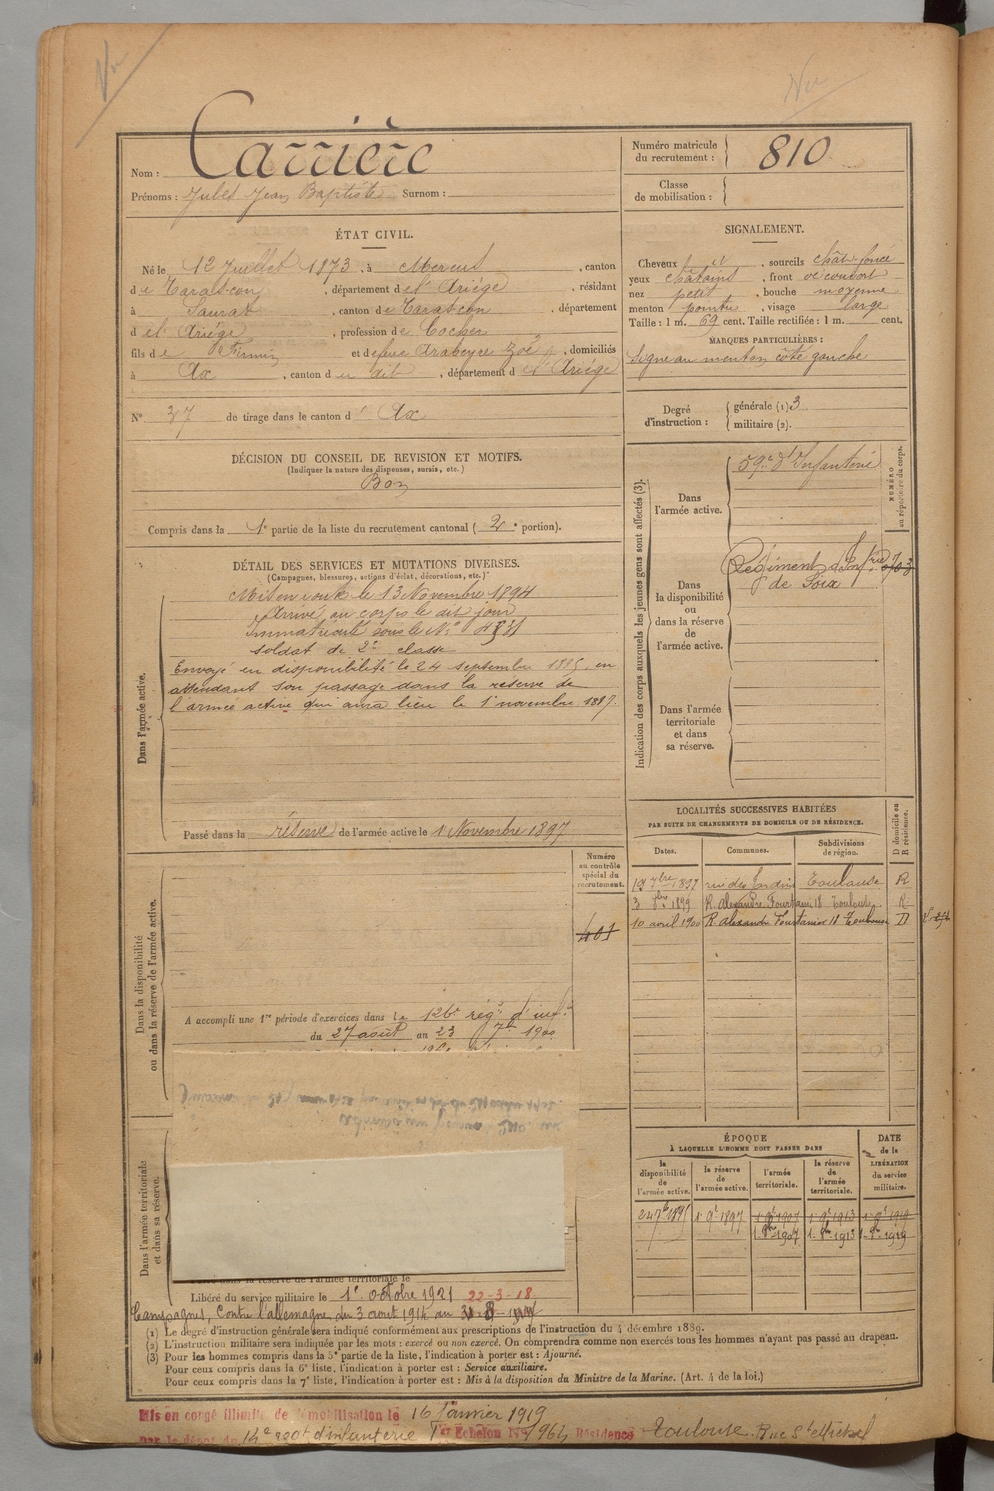 Nom : Carrière
Prénoms : Jules Jean Baptiste Surnom :
Numéro matricule du recrutement : 810
Classe de mobilisation :
ÉTAT CIVIL.
Né le 12 Juillet 1873, à Mercus, canton
de Tarascon, département de l'Ariège, résidant
à Saurat, canton de Tarascon, département
de l'Ariège, profession de Cocher
fils de Firmin et de Arabeyre Zoé, domiciliés
à Ax, canton du dit, département de l'Ariège
N° 37 de tirage dans le canton d' Ax
SIGNALEMENT.
Cheveux et, sourcils chât. foncé
yeux châtains, front découvert
nez petit, bouche moyenne
menton pointu, visage large
Taille : 1 m. 69 cent. Taille rectifiée : 1 m. cent.
MARQUES PARTICULIÈRES :
Signe au menton côté gauche
Degré d'instruction : générale (1) 3
militaire (2).
DÉCISION DU CONSEIL DE REVISION ET MOTIFS.
(Indiquer la nature des dispenses, sursis, etc.)
Bon
Compris dans la 1e partie de la liste du recrutement cantonal (2e portion).
DÉTAIL DES SERVICES ET MUTATIONS DIVERSES.
(Campagnes, blessures, actions d'éclat, décorations, etc.)
Dans l'armée active.
Mis en route le 13 Novembre 1894
Arrivé au corps le dit jour
Immatriculé sous le N°
soldat de 2e classe
Envoyé en disponibilité le 24 septembre 1895, en
attendant son passage dans la réserve de
l'armée active qui aura lieu le 1 novembre 1897.
Passé dans la réserve de l'armée active le 1 Novembre 1897
Indication des corps auxquels les jeunes gens sont affectés (3).
NUMÉRO au répertoire du corps.
Dans l'armée active.
59e d'Infanterie
Dans la disponibilité ou dans la réserve de l'armée active.
Régiment d'Infrie
de Foix
Dans l'armée territoriale et dans sa réserve.
LOCALITÉS SUCCESSIVES HABITÉES
PAR SUITE DE CHANGEMENTS DE DOMICILE OU DE RÉSIDENCE.
D domicile ou R résidence.
Dates. Communes. Subdivisions de région.
19 7bre 1897 rue des Jardins Toulouse R
3 1899 R. Alexandre Fourtanier 18 Toulouse R
10 avril 1900 R. Alexandre Fourtanier 18 Toulouse D
Numéro au contrôle spécial du recrutement.
401
Dans la disponibilité ou dans la réserve de l'armée active.
A accompli une 1re période d'exercices dans le 126e régt d'inf.
du 27 août au 23 7bre 1900
Dans l'armée territoriale et dans sa réserve.
ÉPOQUE
À LAQUELLE L'HOMME DOIT PASSER DANS
la disponibilité de l'armée active. la réserve de l'armée active. l'armée territoriale. la réserve de l'armée territoriale.
DATE de la LIBÉRATION du service militaire.
24 7bre 1895 1 9e 1897 1 9e 1907 1 9e 1913 1 9e 1919
1 8bre 1907 1 8bre 1913 1 8bre 1919
la réserve de l'armée territoriale le
Libéré du service militaire le 1er octobre 1921 22-3-18.
Campagnes, Contre l'allemagne, du 3 aout 1914 au
(1) Le degré d'instruction générale sera indiqué conformément aux prescriptions de l'instruction du 4 décembre 1889.
(2) L'instruction militaire sera indiquée par les mots : exercé ou non exercé. On comprendra comme non exercés tous les hommes n'ayant pas passé au drapeau.
(3) Pour les hommes compris dans la 5e partie de la liste, l'indication à porter est : Ajourné.
Pour ceux compris dans la 6e liste, l'indication à porter est : Service auxiliaire.
Pour ceux compris dans la 7e liste, l'indication à porter est : Mis à la disposition du Ministre de la Marine. (Art. 4 de la loi.)
Mis en congé illimité de démobilisation le 16 Janvier 1919
par le dépôt du 14e regt d'infanterie 1er Echelon N° 964 Résidence Toulouse. Rue St Michel